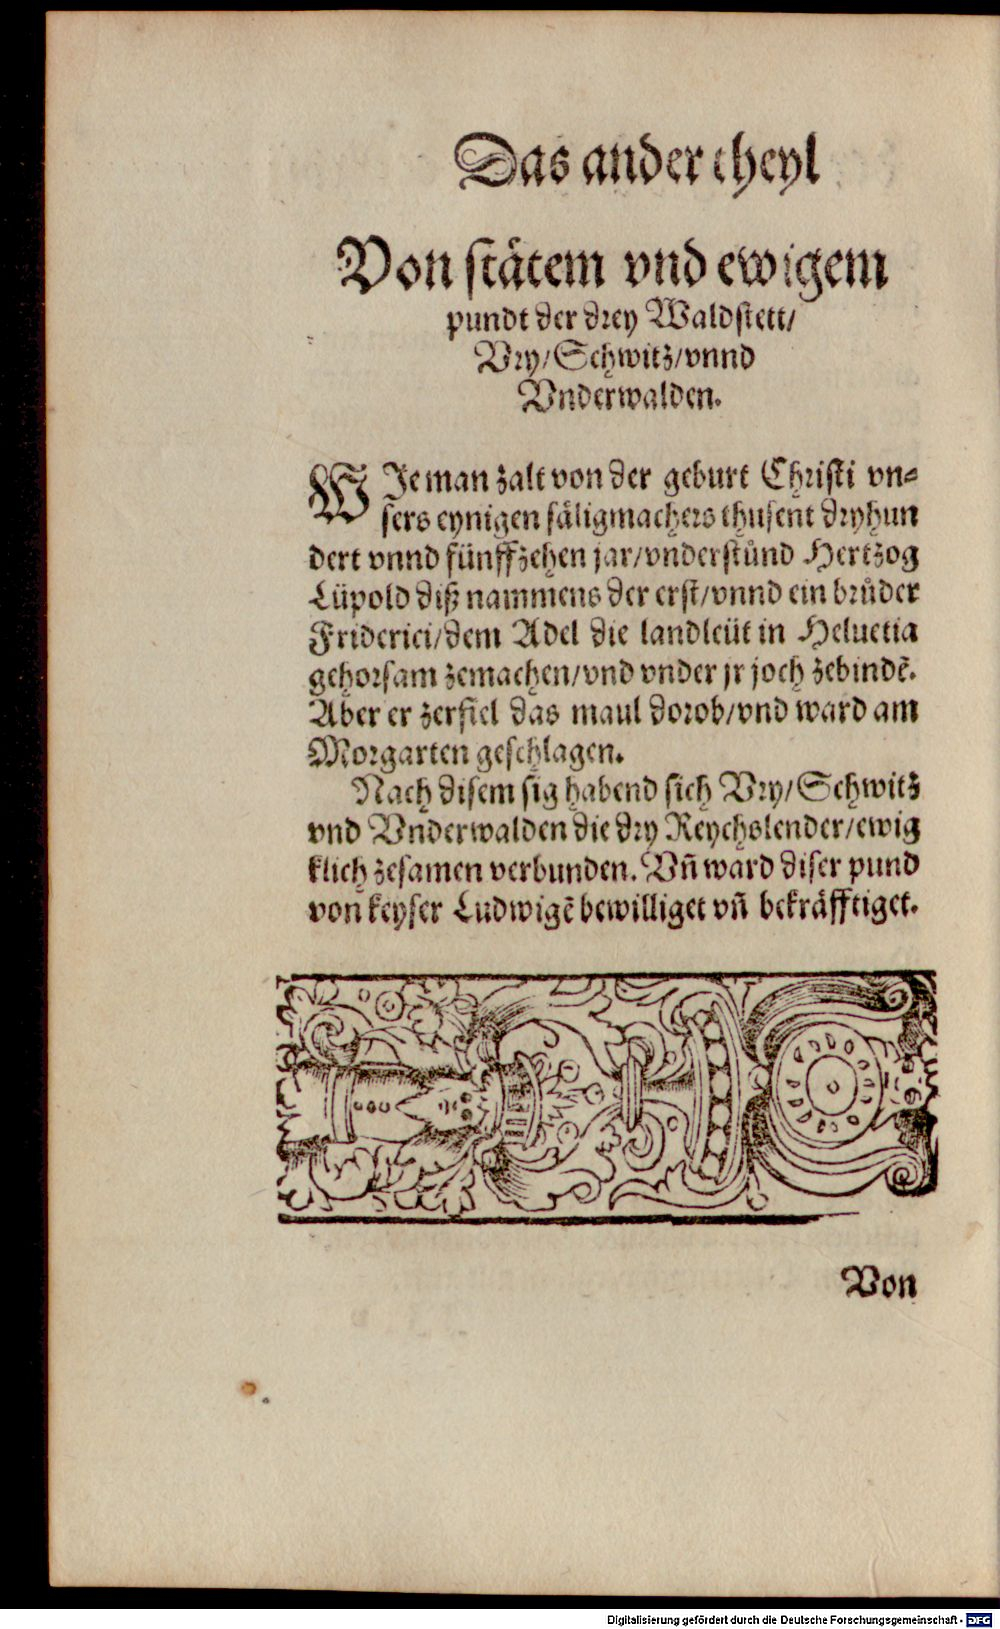 Das ander theyl
Von stätem vnd ewigem
pundt der drey Waldstett/
Vry/Schwitz/vnnd
Vnderwalden.
WJe man zalt von der geburt Christi vn⸗
sers eynigen säligmachers thusent dryhun
dert vnnd fünffzehen jar/vnderstůnd Hertzog
Lüpold diß nammens der erst/vnnd ein brůder
Friderici/dem Adel die landleüt in Heluetia
gehorsam zemachen/vnd vnder jr joch zebindē.
Aber er zerfiel das maul dorob/vnd ward am
Morgarten geschlagen.
Nach disem sig habend sich Vry/Schwitz
vnd Vnderwalden die dry Reychslender/ewig
klich zesamen verbunden. Vñ ward diser pund
von keyser Ludwigē bewilliget vñ bekräfftiget.
Von
Digitalisierung gefördert durch die Deutsche Forschungsgemeinschaft - DFG